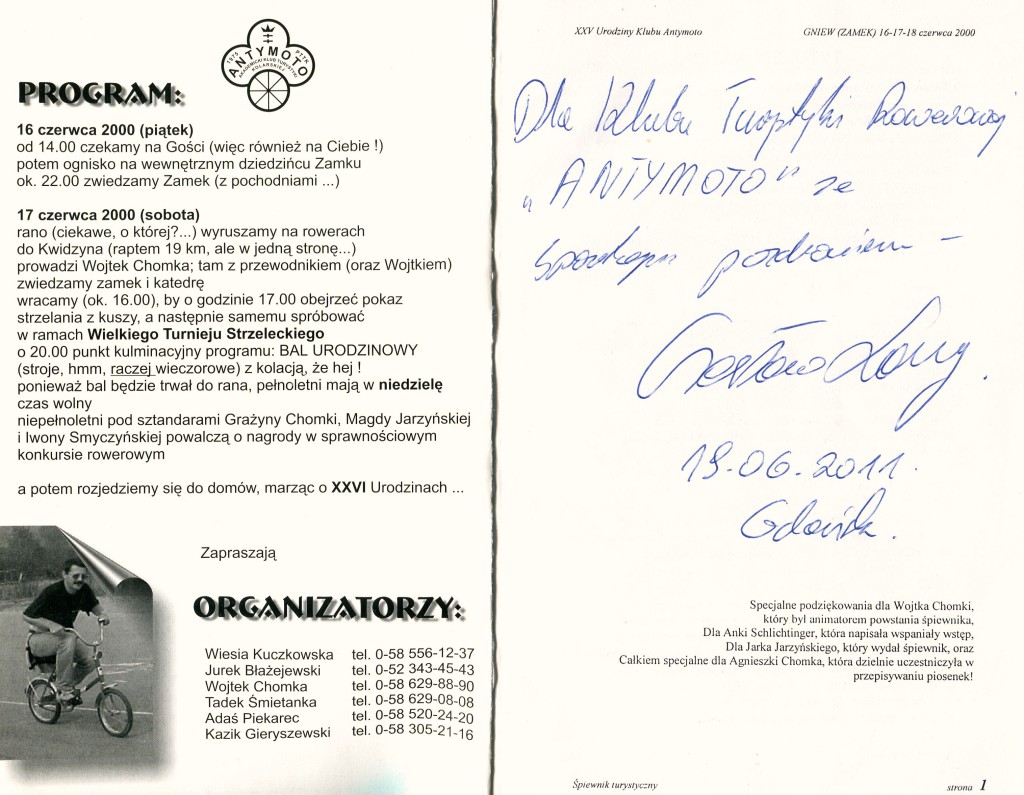 1975 ANTYMOTO PTTK
AKADEMICKI KLUB TURYSTYKI
KOLARSKIEJ
PROGRAM:
16 czerwca 2000 (piątek)
od 14.00 czekamy na Gości (więc również na Ciebie !)
potem ognisko na wewnętrznym dziedzińcu Zamku
ok. 22.00 zwiedzamy Zamek (z pochodniami ...)
17 czerwca 2000 (sobota)
rano (ciekawe, o której?...) wyruszamy na rowerach
do Kwidzyna (raptem 19 km, ale w jedną stronę...)
prowadzi Wojtek Chomka; tam z przewodnikiem (oraz Wojtkiem)
zwiedzamy zamek i katedrę
wracamy (ok. 16.00), by o godzinie 17.00 obejrzeć pokaz
strzelania z kuszy, a następnie samemu spróbować
w ramach Wielkiego Turnieju Strzeleckiego
o 20.00 punkt kulminacyjny programu: BAL URODZINOWY
(stroje, hmm, raczej wieczorowe) z kolacją, że hej !
ponieważ bal będzie trwał do rana, pełnoletni mają w niedzielę
czas wolny
niepełnoletni pod sztandarami Grażyny Chomki, Magdy Jarzyńskiej
i Iwony Smyczyńskiej powalczą o nagrody w sprawnościowym
konkursie rowerowym
a potem rozjedziemy się do domów, marząc o XXVI Urodzinach ...
Zapraszają
ORGANIZATORZY:
Wiesia Kuczkowska tel. 0-58 556-12-37
Jurek Błażejewski tel. 0-52 343-45-43
Wojtek Chomka tel. 0-58 629-88-90
Tadek Śmietanka tel. 0-58 629-08-08
Adaś Piekarec tel. 0-58 520-24-20
Kazik Gieryszewski tel. 0-58 305-21-16
XXV Urodziny Klubu Antymoto GNIEW (ZAMEK) 16-17-18 czerwca 2000
Dla Klubu Turystyki Rowerowej
„ANTYMOTO" ze
pozdrowieniem –
Czesław Lang.
19.06.2011.
Gdańsk.
Specjalne podziękowania dla Wojtka Chomki,
który był animatorem powstania śpiewnika,
Dla Anki Schlichtinger, która napisała wspaniały wstęp,
Dla Jarka Jarzyńskiego, który wydał śpiewnik, oraz
Całkiem specjalne dla Agnieszki Chomka, która dzielnie uczestniczyła w
przepisywaniu piosenek!
Śpiewnik turystyczny strona 1